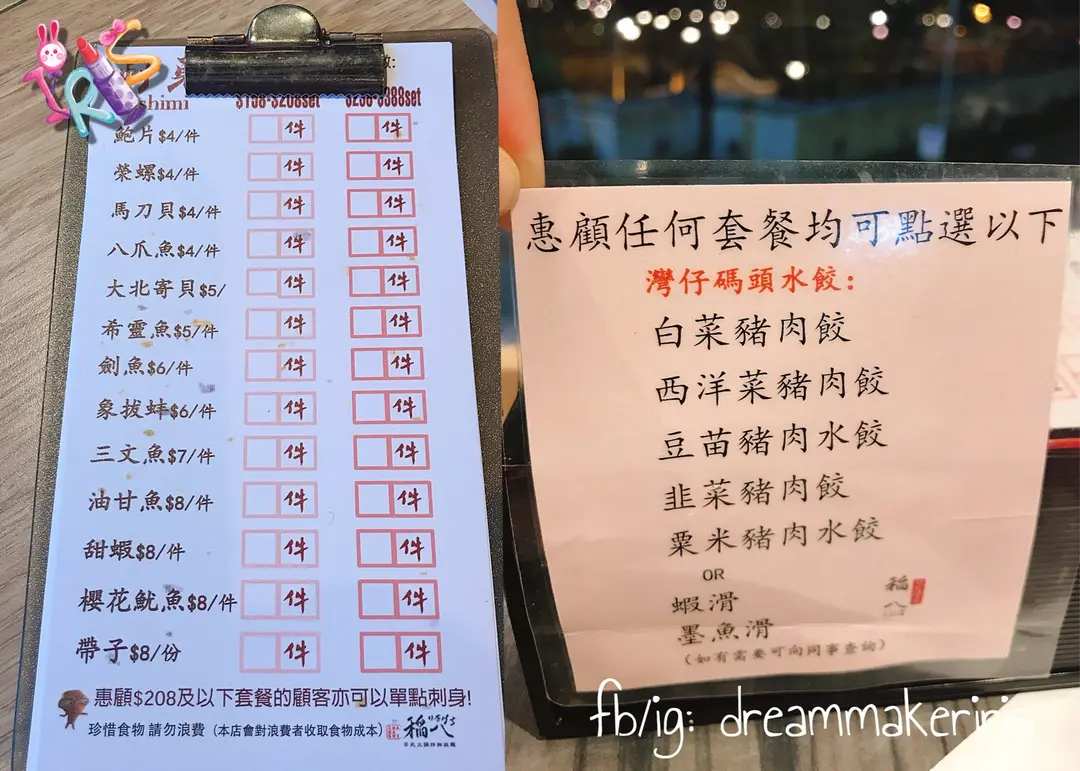 IRIS
$158-$208set
件 件
鮑片$4/件 件 件
榮螺$4/件 件 件
馬刀貝$4/件 件 件
八爪魚$4/件 件 件
大北寄貝$5/ 件 件
希靈魚$5/件 件 件
劍魚$6/件 件 件
象拔蚌$6/件 件 件
三文魚$7/件 件 件
油甘魚$8/件 件 件
甜蝦$8/件 件 件
櫻花魷魚$8/件 件 件
帶子$8/份 件 件
惠顧$208及以下套餐的顧客亦可以單點刺身!
珍惜食物 請勿浪費（本店會對浪費者收取食物成本）
稲八
惠顧任何套餐均可點選以下
灣仔碼頭水餃:
白菜豬肉餃
西洋菜豬肉餃
豆苗豬肉水餃
韭菜豬肉餃
粟米豬肉水餃
OR
蝦滑
墨魚滑
（如有需要可向同事查詢）
稲八
fb/ig: dreammakeriris